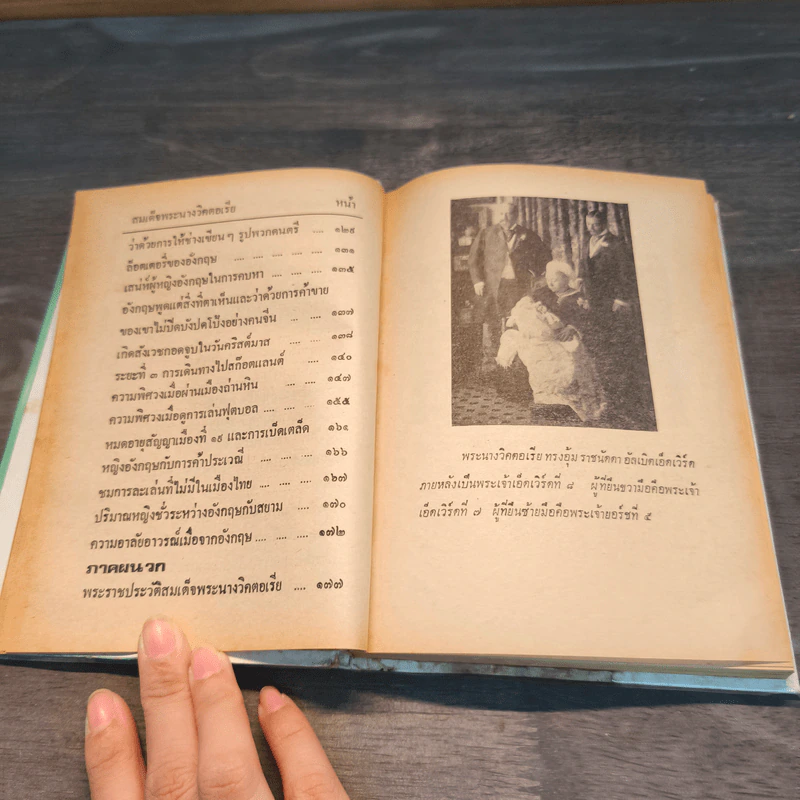 สมเด็จพระนางวิคตอเรีย หน้า
ว่าด้วยการให้ช่างเขียน ๆ รูปพวกดนตรี .... ๑๒๙
ล็อตเตอรี่ของอังกฤษ .... .... .... .... ๑๓๑
เสน่ห์ผู้หญิงอังกฤษในการคบหา .... .... .... ๑๓๕
อังกฤษพูดแต่สิ่งที่ตาเห็นและว่าด้วยการค้าขาย
ของเขาไม่ปิดบังปดโป้งอย่างคนจีน .. .... ๑๓๗
เกิดสังเวชกอดจูบในวันคริสต์มาส .... .... ๑๓๘
ระยะที่ ๓ การเดินทางไปสก๊อตแลนด์ .... ๑๔๐
ความพิศวงเมื่อผ่านเมืองถ่านหิน .... .... ๑๔๗
ความพิศวงเมื่อดูการเล่นฟุตบอล .... .... .... ๑๕๕
หมดอายุสัญญาเมืองที่ ๑๙ และการเบ็ดเตล็ด ๑๖๔
หญิงอังกฤษกับการค้าประเวณี .... .... ๑๖๖
ชมการละเล่นที่ไม่มีในเมืองไทย .... .... ๑๖๗
ปริมาณหญิงชั่วระหว่างอังกฤษกับสยาม .... ๑๗๐
ความอาลัยอาวรณ์เมื่อจากอังกฤษ .... .... ๑๗๒
ภาคผนวก
พระราชประวัติสมเด็จพระนางวิคตอเรีย .... ๑๗๗
พระนางวิคตอเรีย ทรงอุ้ม ราชนัดดา อัลเบิตเอ็ดเวิร์ด
ภายหลังเป็นพระเจ้าเอ็ดเวิร์ดที่ ๘ ผู้ที่ยืนขวามือคือพระเจ้า
เอ็ดเวิร์ดที่ ๗ ผู้ที่ยืนซ้ายมือคือพระเจ้ายอร์ชที่ ๕